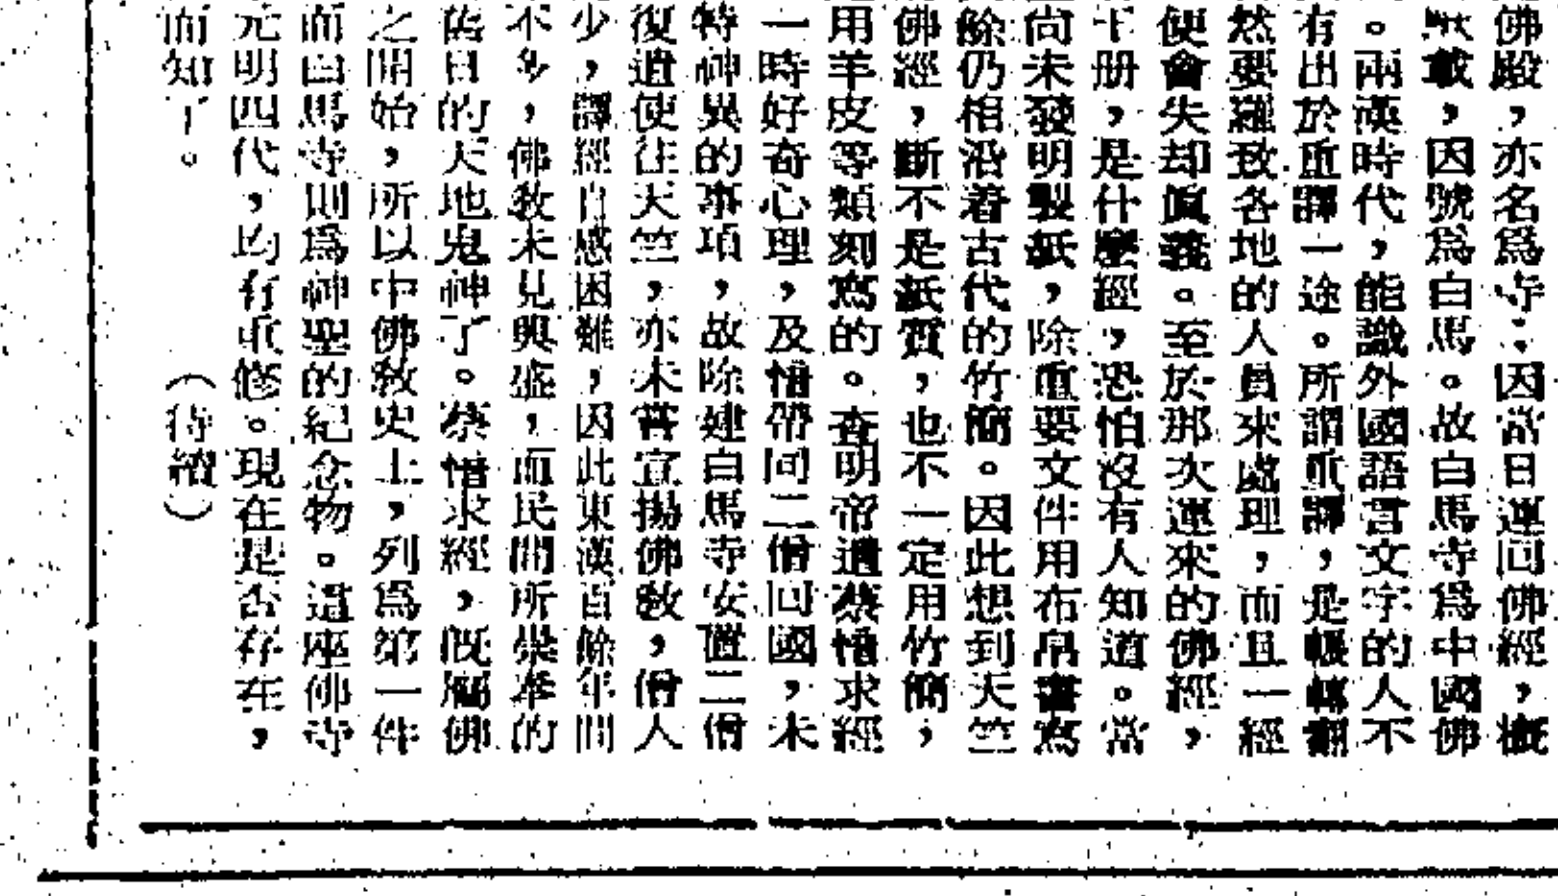 佛殿，亦名爲寺；因當日運回佛經，概
馱載，因號爲白馬。故白馬寺爲中國佛
。兩漢時代，能識外國語言文字的人不
有出於重譯一途。所謂重譯，是輾轉翻
然要羅致各地的人員來處理，而且一經
便會失却眞義。至於那次運來的佛經，
十册，是什麼經，恐怕沒有人知道。當
尚未發明製紙，除重要文件用布帛書寫
餘仍相沿着古代的竹簡。因此想到天竺
佛經，斷不是紙質，也不一定用竹簡，
用羊皮等類刻寫的。查明帝遣蔡愔求經
一時好奇心理，及愔帶同二僧回國，未
特神異的事項，故除建白馬寺安置二僧
復遣使往天竺，亦未嘗宣揚佛敎，僧人
少，譯經自感困難，因此東漢百餘年間
不多，佛敎未見興盛，而民間所崇奉的
舊日的天地鬼神了。蔡愔求經，旣屬佛
之開始，所以中佛敎史上，列爲第一件
而白馬寺則爲神聖的紀念物。這座佛寺
元明四代，均有重修。現在是否存在，
而知了。
（待續）